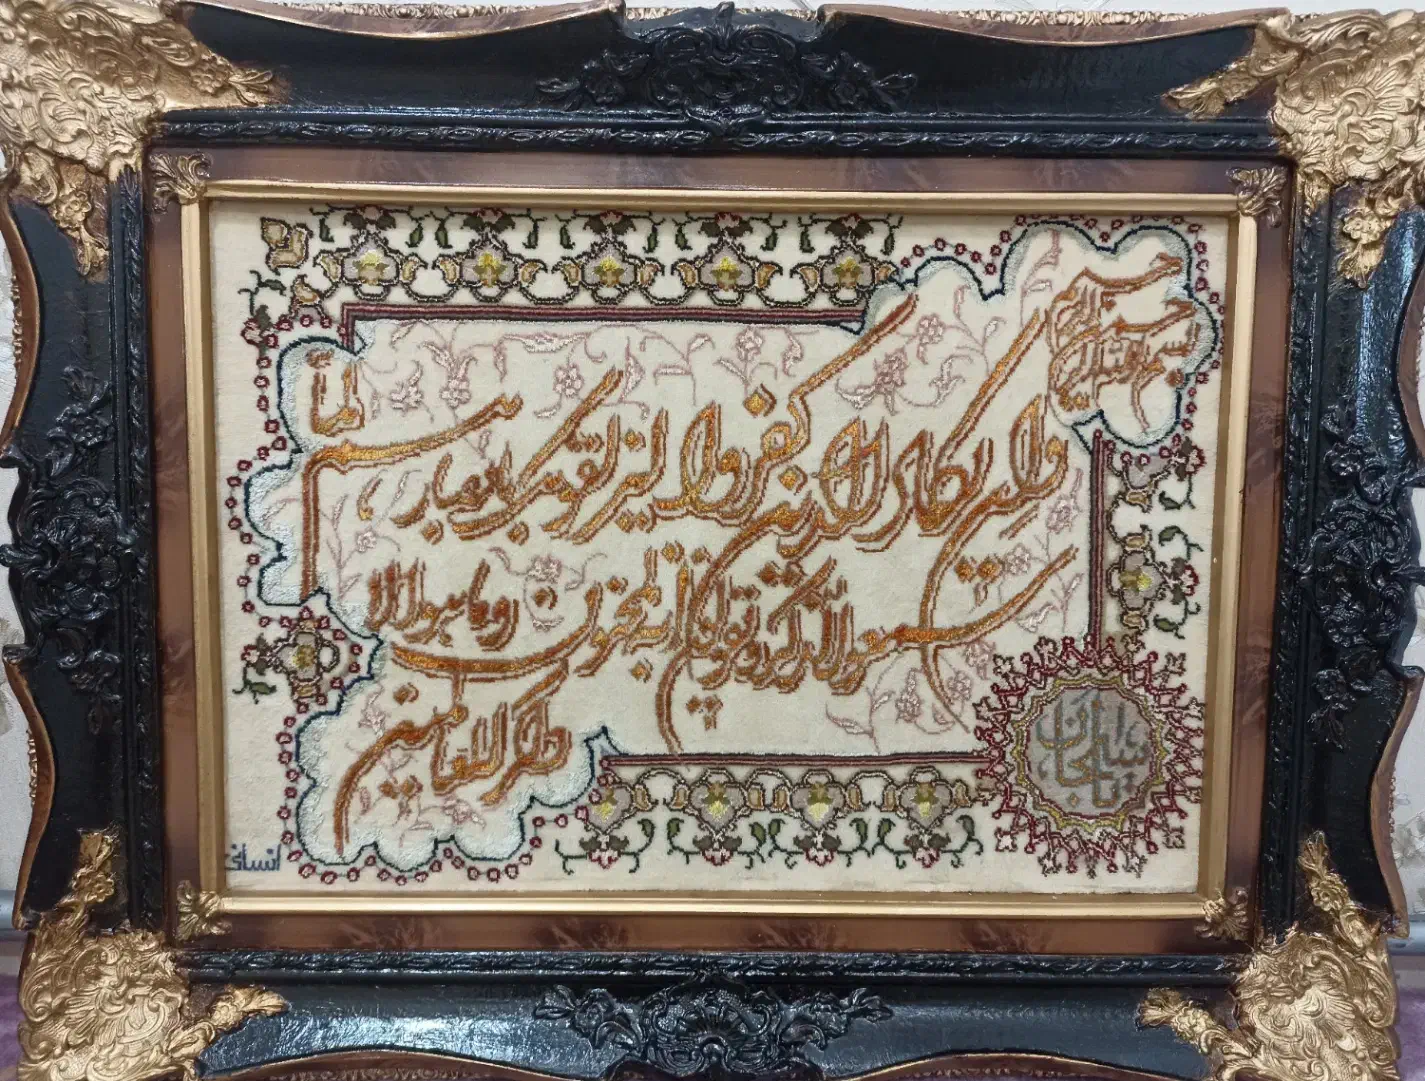 بسم الله الرحمن الرحیم
وان یکاد الذین کفروا لیزلقونک بابصارهم لما
سمعوا الذکر ویقولون انه لمجنون وما هو الا
ذکر للعالمین
سبحان
انسانی